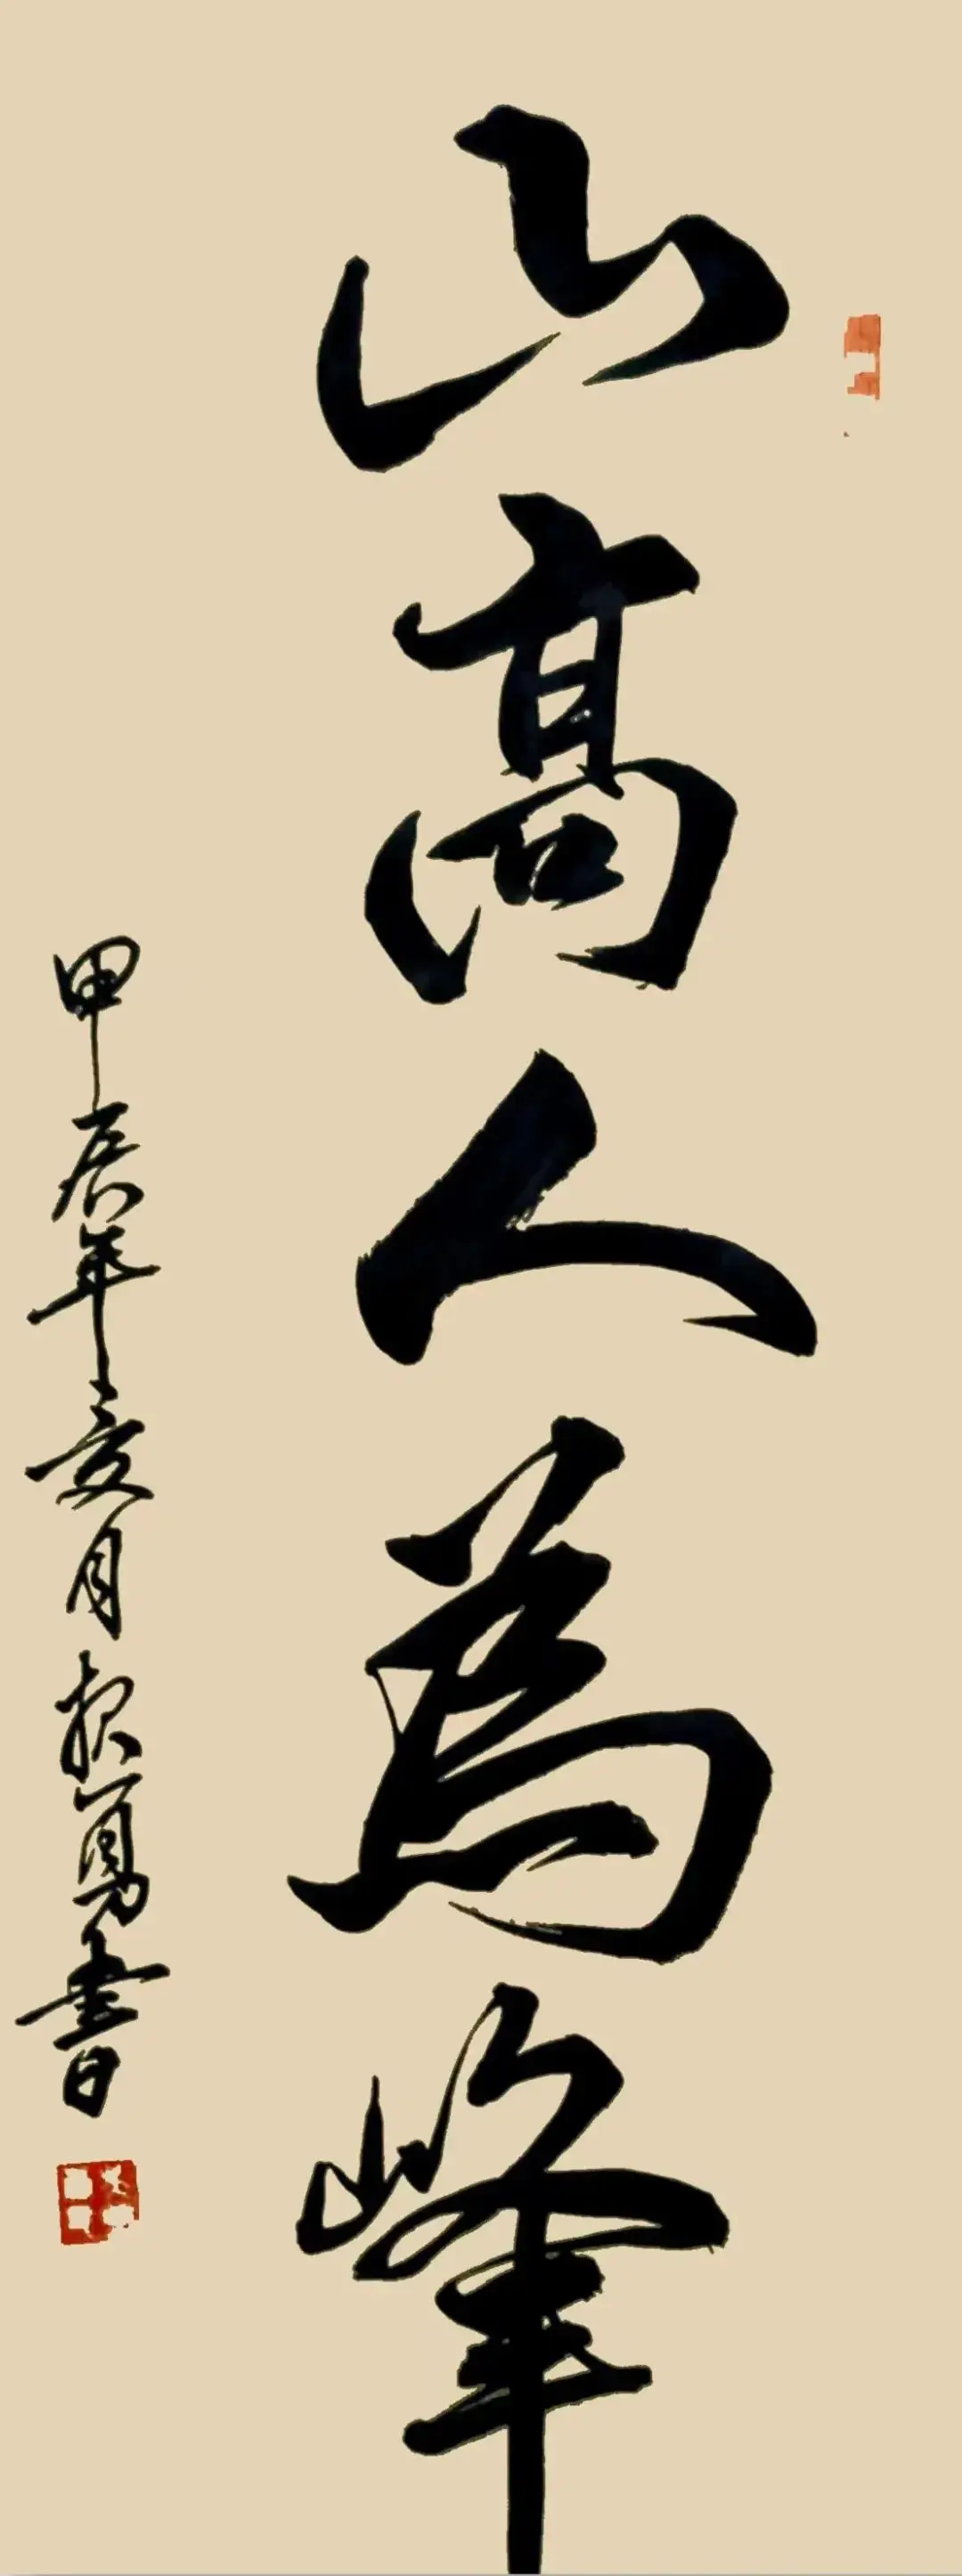 山高人為峰
甲辰年夏月書